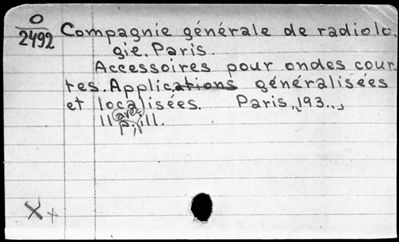 O
2492
Compagnie générale de radiolo.
gie. Paris.
Accessoires pour ondes cour
tes. Applications généralisées
et localisées. Paris, 193..,
11 p. ill.
avec
X x